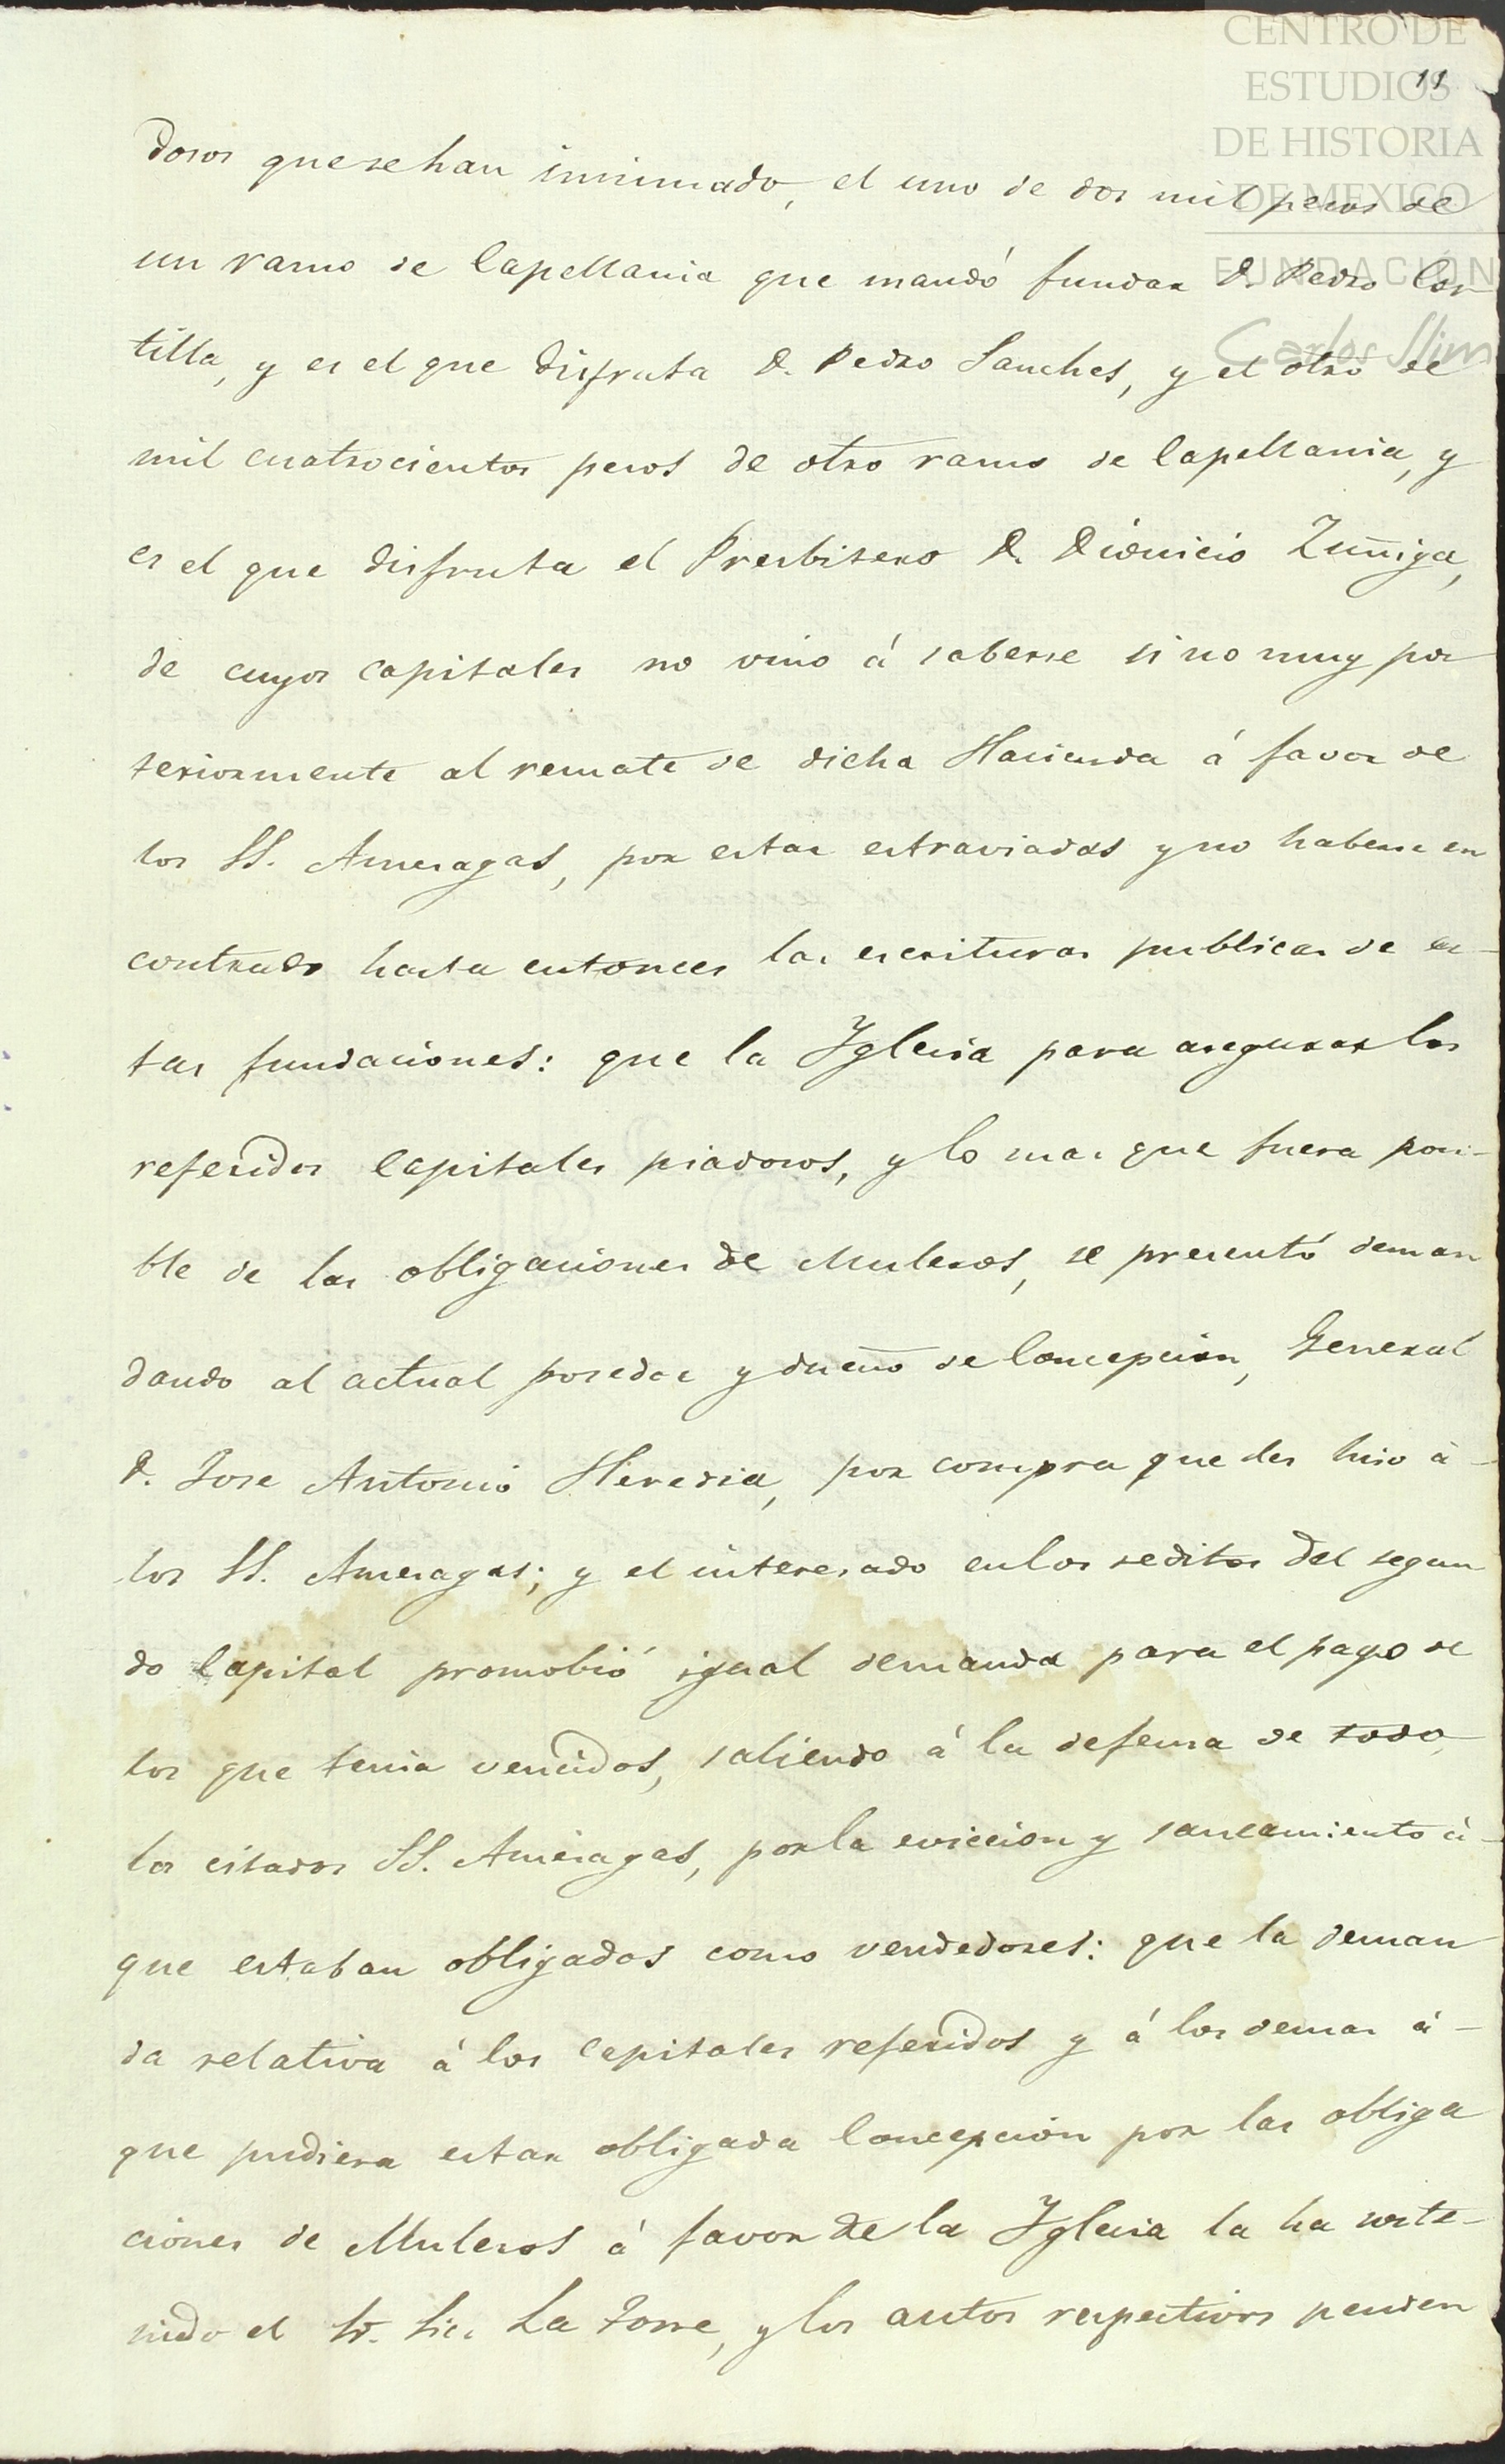 CENTRO DE
ESTUDIOS
DE HISTORIA
DE MEXICO
FUNDACIÓN
Carlos Slim
11
dosos que se han insinuado, el uno de dos mil pesos de
un ramo de Capellania que mandó fundar D. Pedro Cas
tilla, y es el que disfruta D. Pedro Sanches, y el otro de
mil cuatrocientos pesos de otro ramo de Capellania, y
es el que disfruta el Presbitero D. Dionicio Zuñiga,
de cuyos capitales no vino á saberse sino muy pos
teriormente al remate de dicha Hacienda á favor de
los SS. Amesagas, por estar estraviadas y no haberse en
contrado hasta entonces las escrituras publicas de es-
tas fundaciones: que la Yglesia para asegurar los
referidos Capitales piadosos, y lo mas que fuera posi-
ble de las obligaciones de Muleros, se presentó deman
dando al actual posedor y dueño de Concepcion, General
D. Jose Antonio Heredia, por compra que les hiso á-
los SS. Amesagas; y el interesado en los reditos del segun
do Capital promobió igual demanda para el pago de
los que tenia vencidos, saliendo á la defensa de todo,
los citados SS. Amesagas, por la eviccion y saneamiento á-
que estaban obligados como vendedores: que la deman
da relativa á los Capitales referidos y á los demas á-
que pudiera estar obligada Concepcion por las obliga
ciones de Muleros á favor de la Yglesia la ha soste-
nido el Sr. Lic. La Torre, y los autos respectivos penden